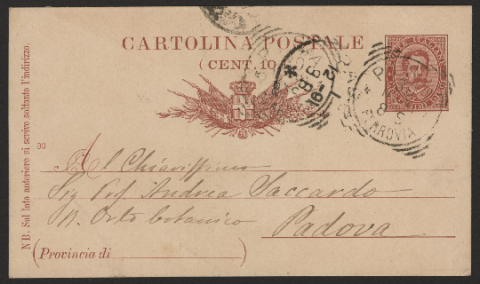 CARTOLINA POSTALE
(CENT. 10)
NB. Sul lato anteriore si scrive soltanto l'indirizzo.
Al Chiarissimo
Sig Prof Andrea Saccardo
R. Orto botanico
Padova
(Provincia di
FERROVIA